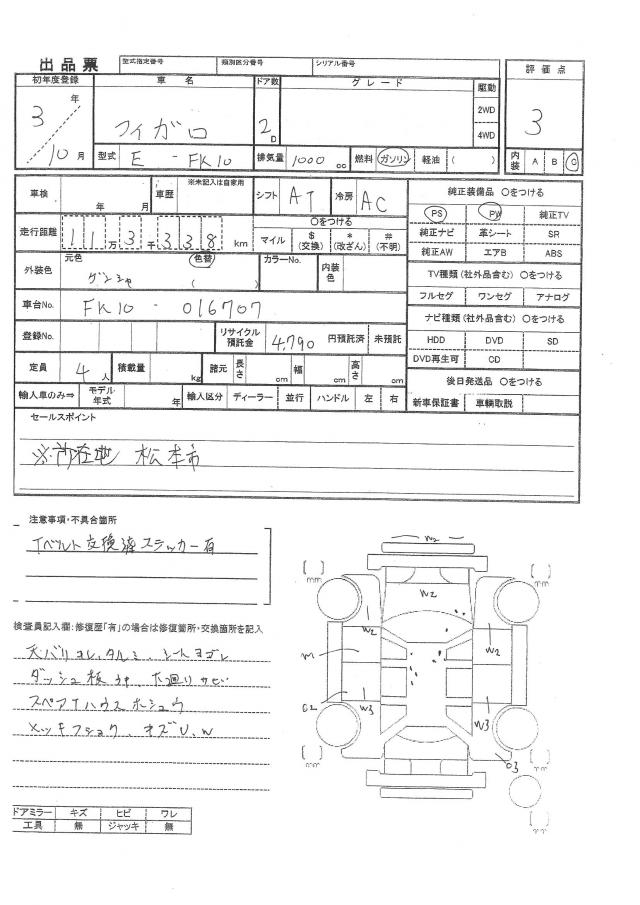 出品票 型式指定番号 類別区分番号 シリアル番号
初年度登録 車名 ドア数 グレード 駆動 評価点
3年 フィガロ 2D 2WD 4WD 3
10月 型式 E - FK10 排気量 1000cc 燃料 ガソリン 軽油 ( ) 内装 A B C
車検 年 月 車歴 ※未記入は自家用 シフト AT 冷房 AC 純正装備品 〇をつける
PS PW 純正TV
走行距離 11万3千338km 〇をつける マイル $(交換) *(改ざん) #(不明) 純正ナビ 革シート SR
純正AW エアB ABS
外装色 元色 ゲンシャ 色替 ( ) カラーNo. 内装色 TV種類(社外品含む) 〇をつける
フルセグ ワンセグ アナログ
車台No. FK10 - 016707 ナビ種類(社外品含む) 〇をつける
登録No. リサイクル預託金 4,790 円預託済 未預託 HDD DVD SD
DVD再生可 CD
定員 4人 積載量 kg 諸元 長さ cm 幅 cm 高さ cm 後日発送品 〇をつける
輸入車のみ⇒ モデル年式 年 輸入区分 ディーラー 並行 ハンドル 左 右 新車保証書 車輌取説
セールスポイント
※所在地 松本市
注意事項・不具合箇所
Tベルト交換済ステッカー有
検査員記入欄:修復歴「有」の場合は修復箇所・交換箇所を記入
天バリヨレ、タルミ、シートヨゴレ
ダッシュ板
下廻りサビ
スペアTハウスホシュウ
メッキフショク、キズU、W
ドアミラー キズ ヒビ ワレ
工具 無 ジャッキ 無
W2
W2
W2 W2
W3 W3
[ ]mm [ ]mm
[ ]mm [ ]mm
[ ]mm